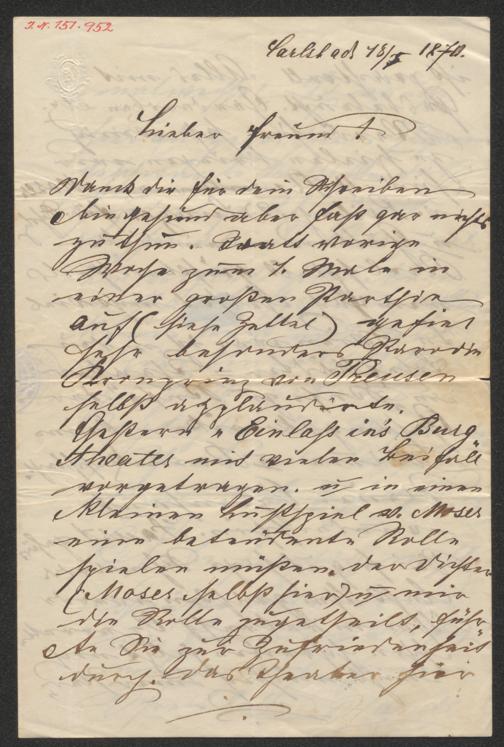 J. N. 151.952
Carlsbad 18/5 1870.
Lieber Freund!
Dank dir für dein Schreiben
bin gesund aber fast gar nichts
zu thun. Tratt vorige
Woche zum 1. Male in
einer großen Parthie
auf (siehe Zettel) gefiel
sehr besonders Parodie
Kronprinz von Preusen
selbst applaudirte.
Gestern "Einlaß in's Burg
Theater mit vielen Beifall
vorgetragen. u in einen
kleinen Lustspiel v. Moser
eine bedeutende Rolle
spielen müßen. der Dichter
(Moser selbst hier) u mir
die Rolle zugetheilt, führ
te Sie zur Zufriedenheit
durch. das Theater hier